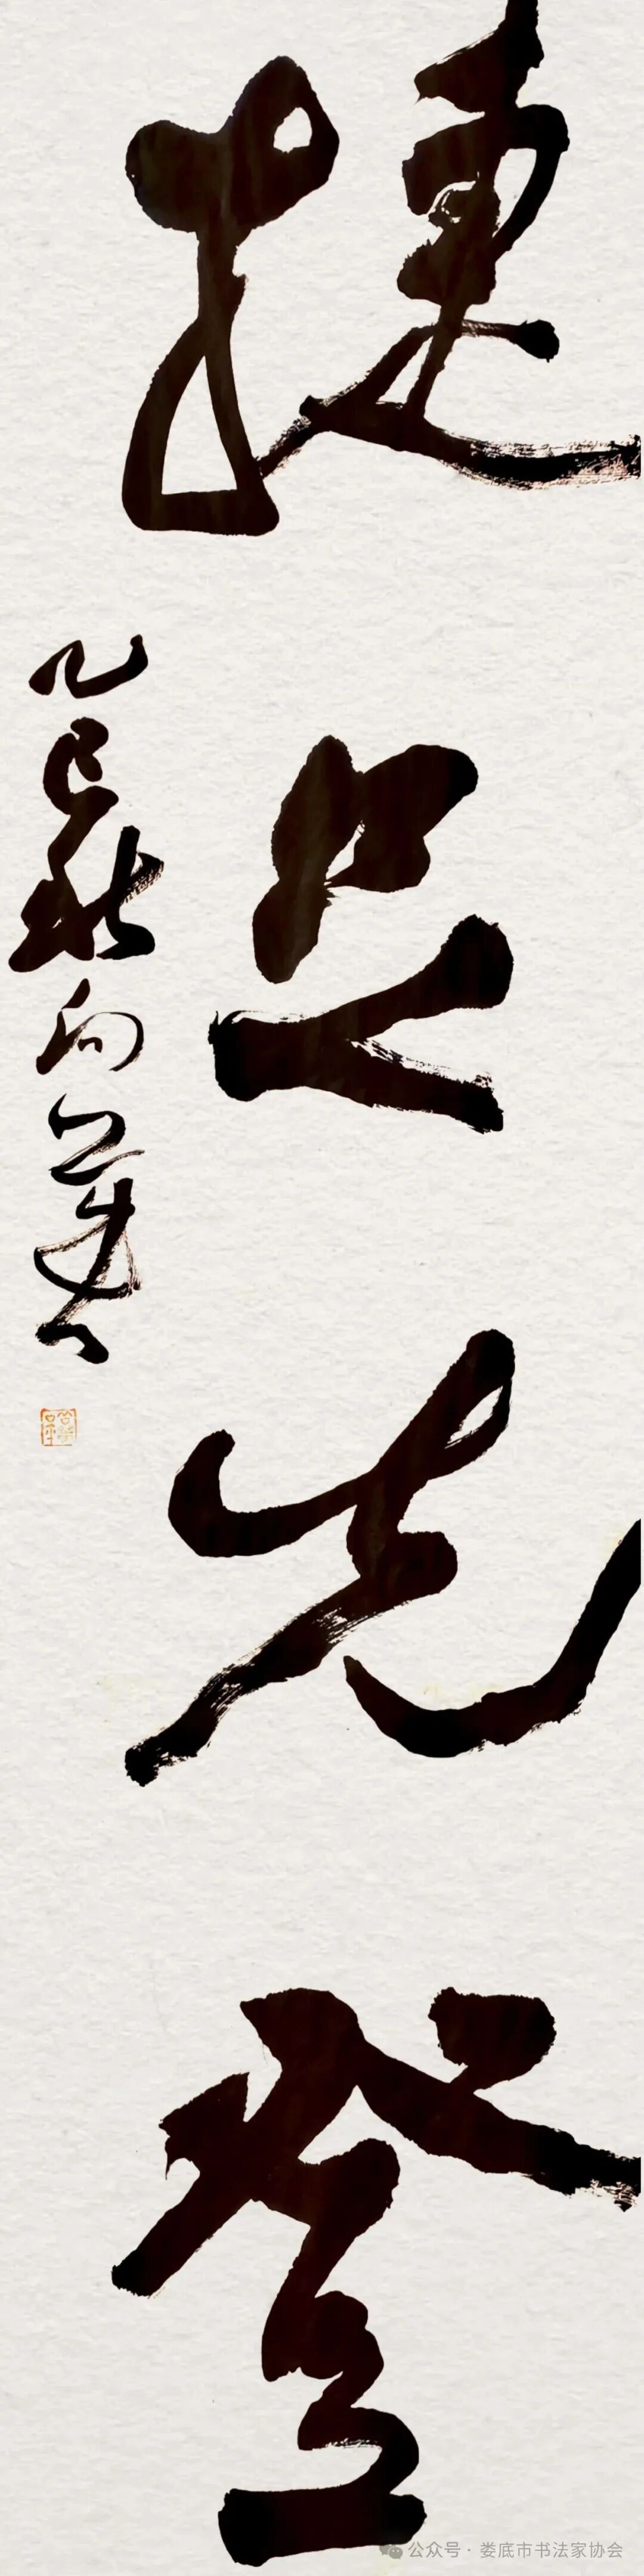 捷足先登
乙巳秋向
公众号·娄底市书法家协会